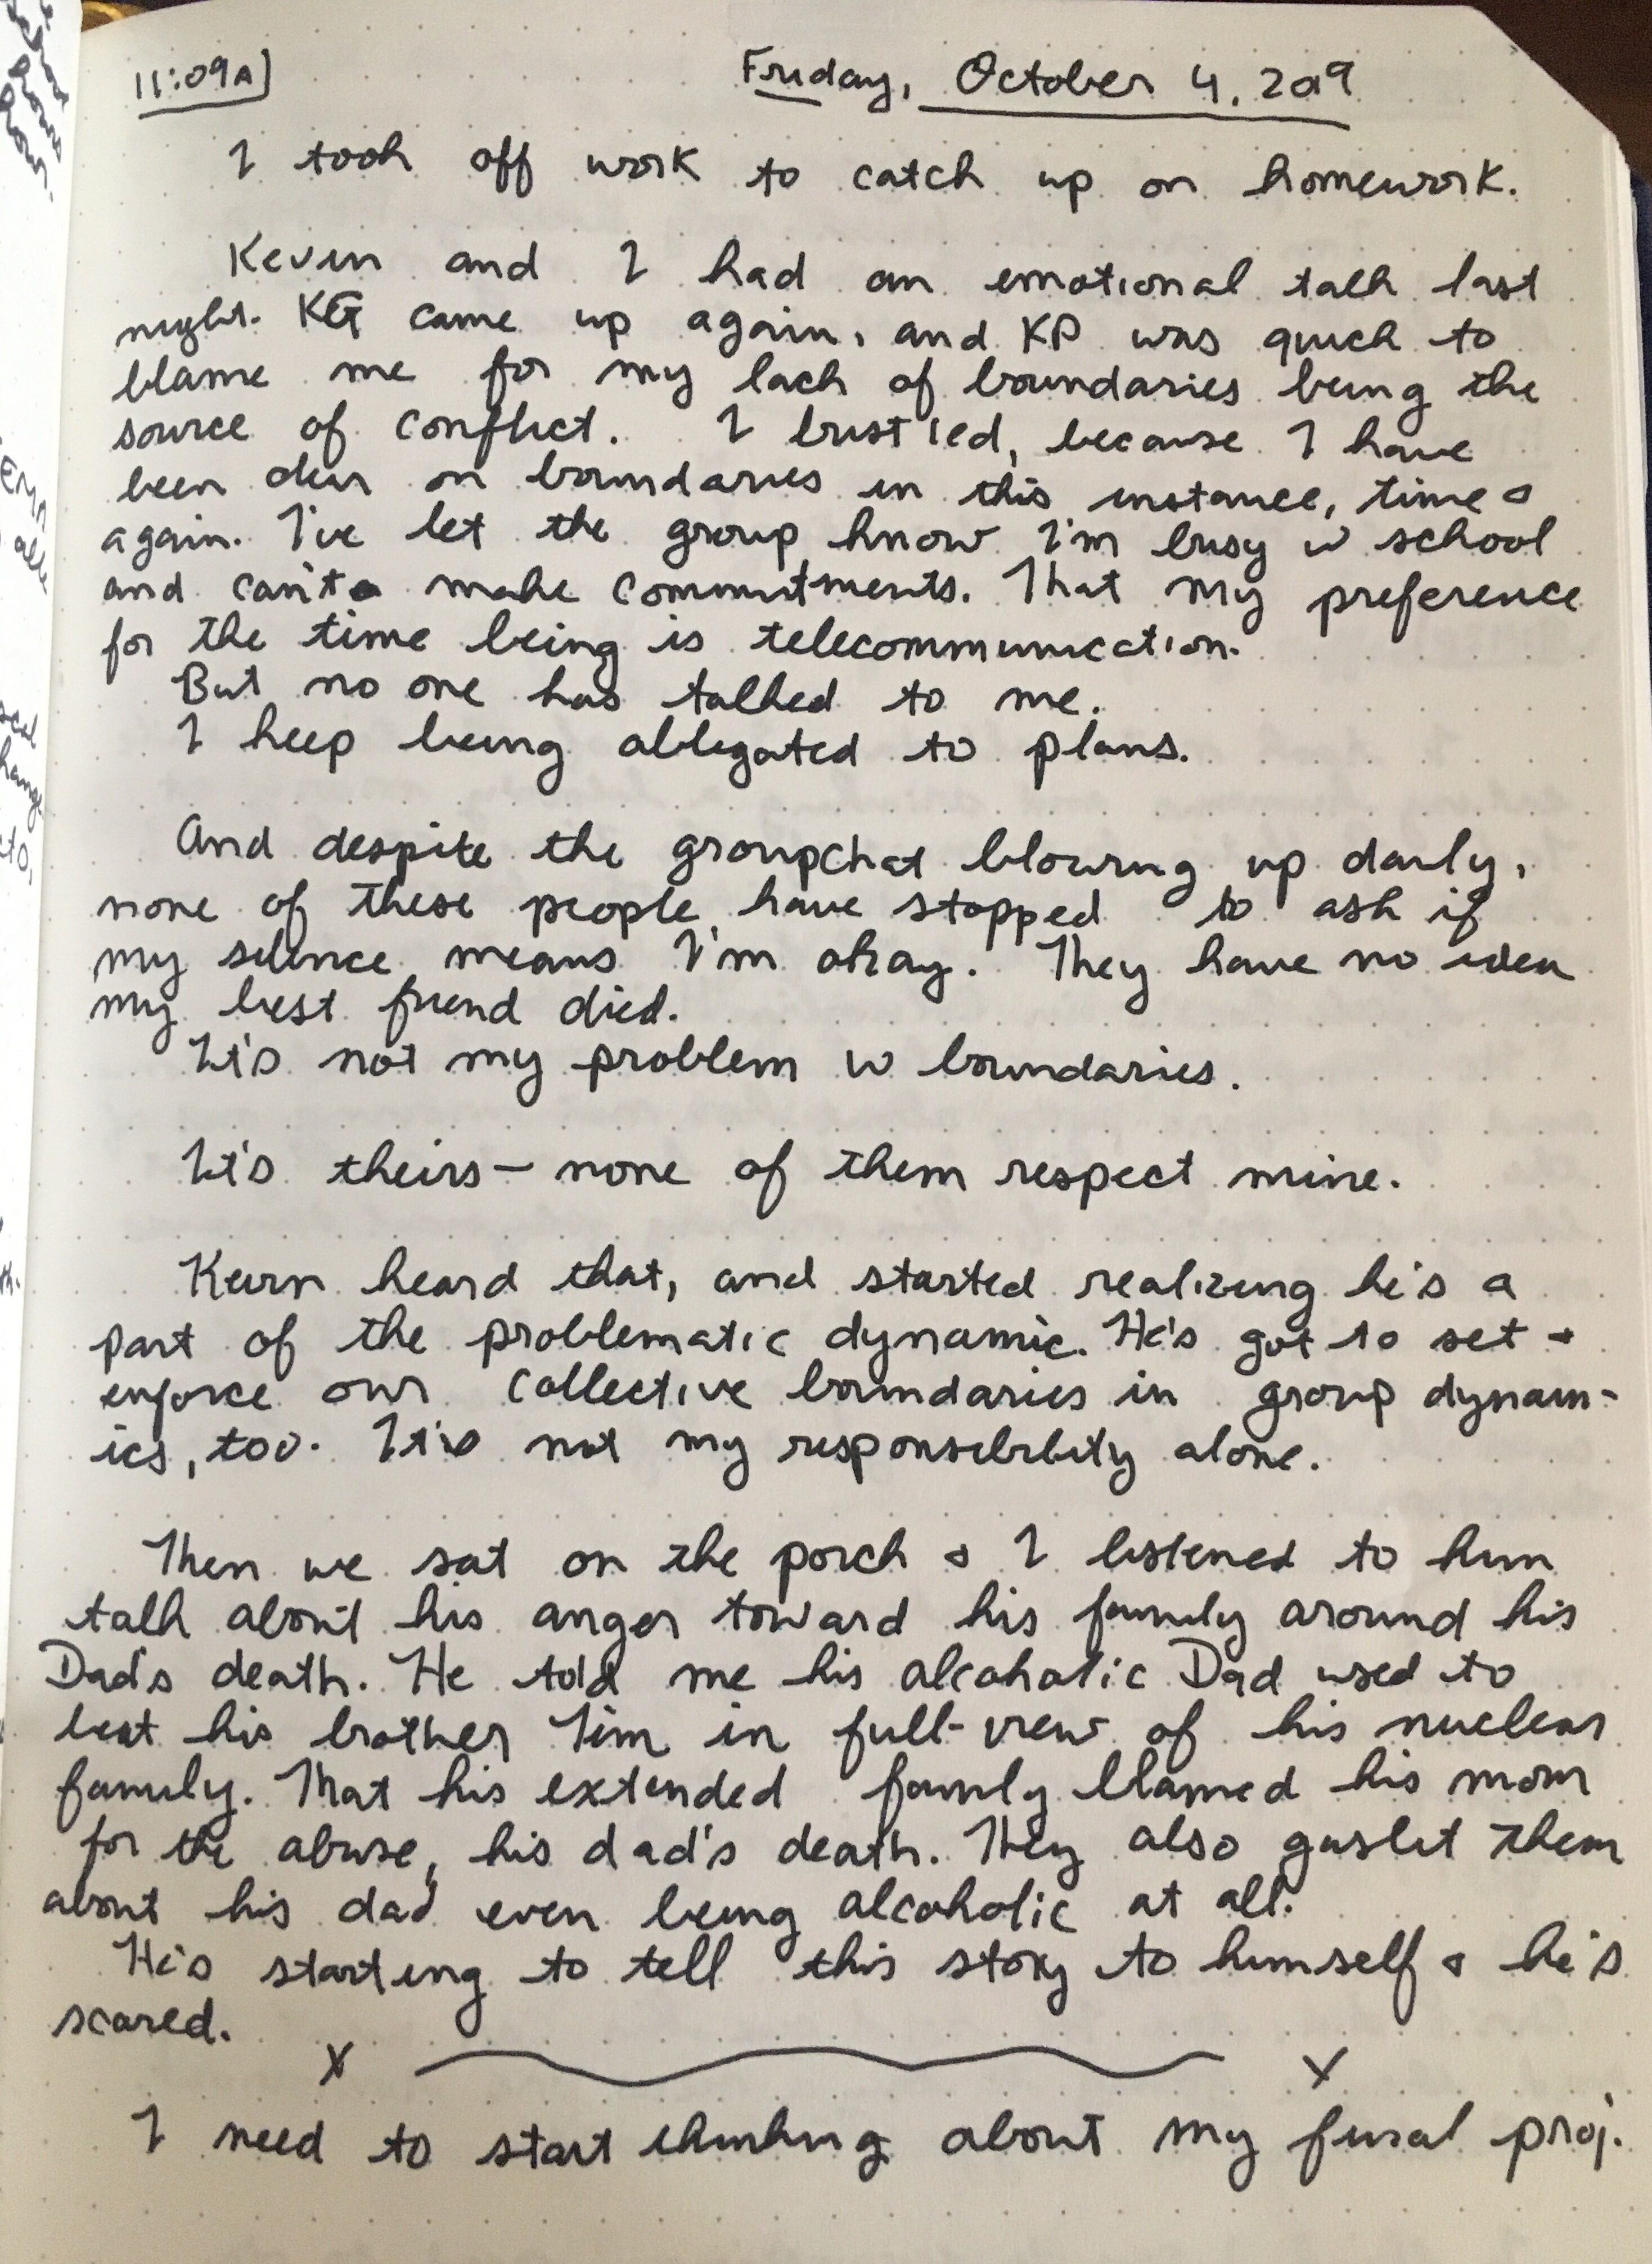 11:09A]
Friday, October 4, 2019
I took off work to catch up on homework.
Kevin and I had an emotional talk last
night. KG came up again, and KP was quick to
blame me for my lack of boundaries being the
source of conflict. I bristled, because I have
been clear on boundaries in this instance, time &
again. I've let the group know I'm busy w school
and can't make commitments. That my preference
for the time being is telecommunication.
But no one has talked to me.
I keep being obligated to plans.
And despite the groupchat blowing up daily,
none of these people have stopped to ask if
my silence means I'm okay. They have no idea
my best friend died.
It's not my problem w boundaries.
It's theirs — none of them respect mine.
Kevin heard that, and started realizing he's a
part of the problematic dynamic. He's got to set +
enforce our collective boundaries in group dynam-
ics, too. It's not my responsibility alone.
Then we sat on the porch & I listened to him
talk about his anger toward his family around his
Dad's death. He told me his alcoholic Dad used to
beat his brother Tim in full-view of his nuclear
family. That his extended family blamed his mom
for the abuse, his dad's death. They also gaslit them
about his dad even being alcoholic at all.
He's starting to tell this story to himself & he's
scared.
x x
I need to start thinking about my final proj.